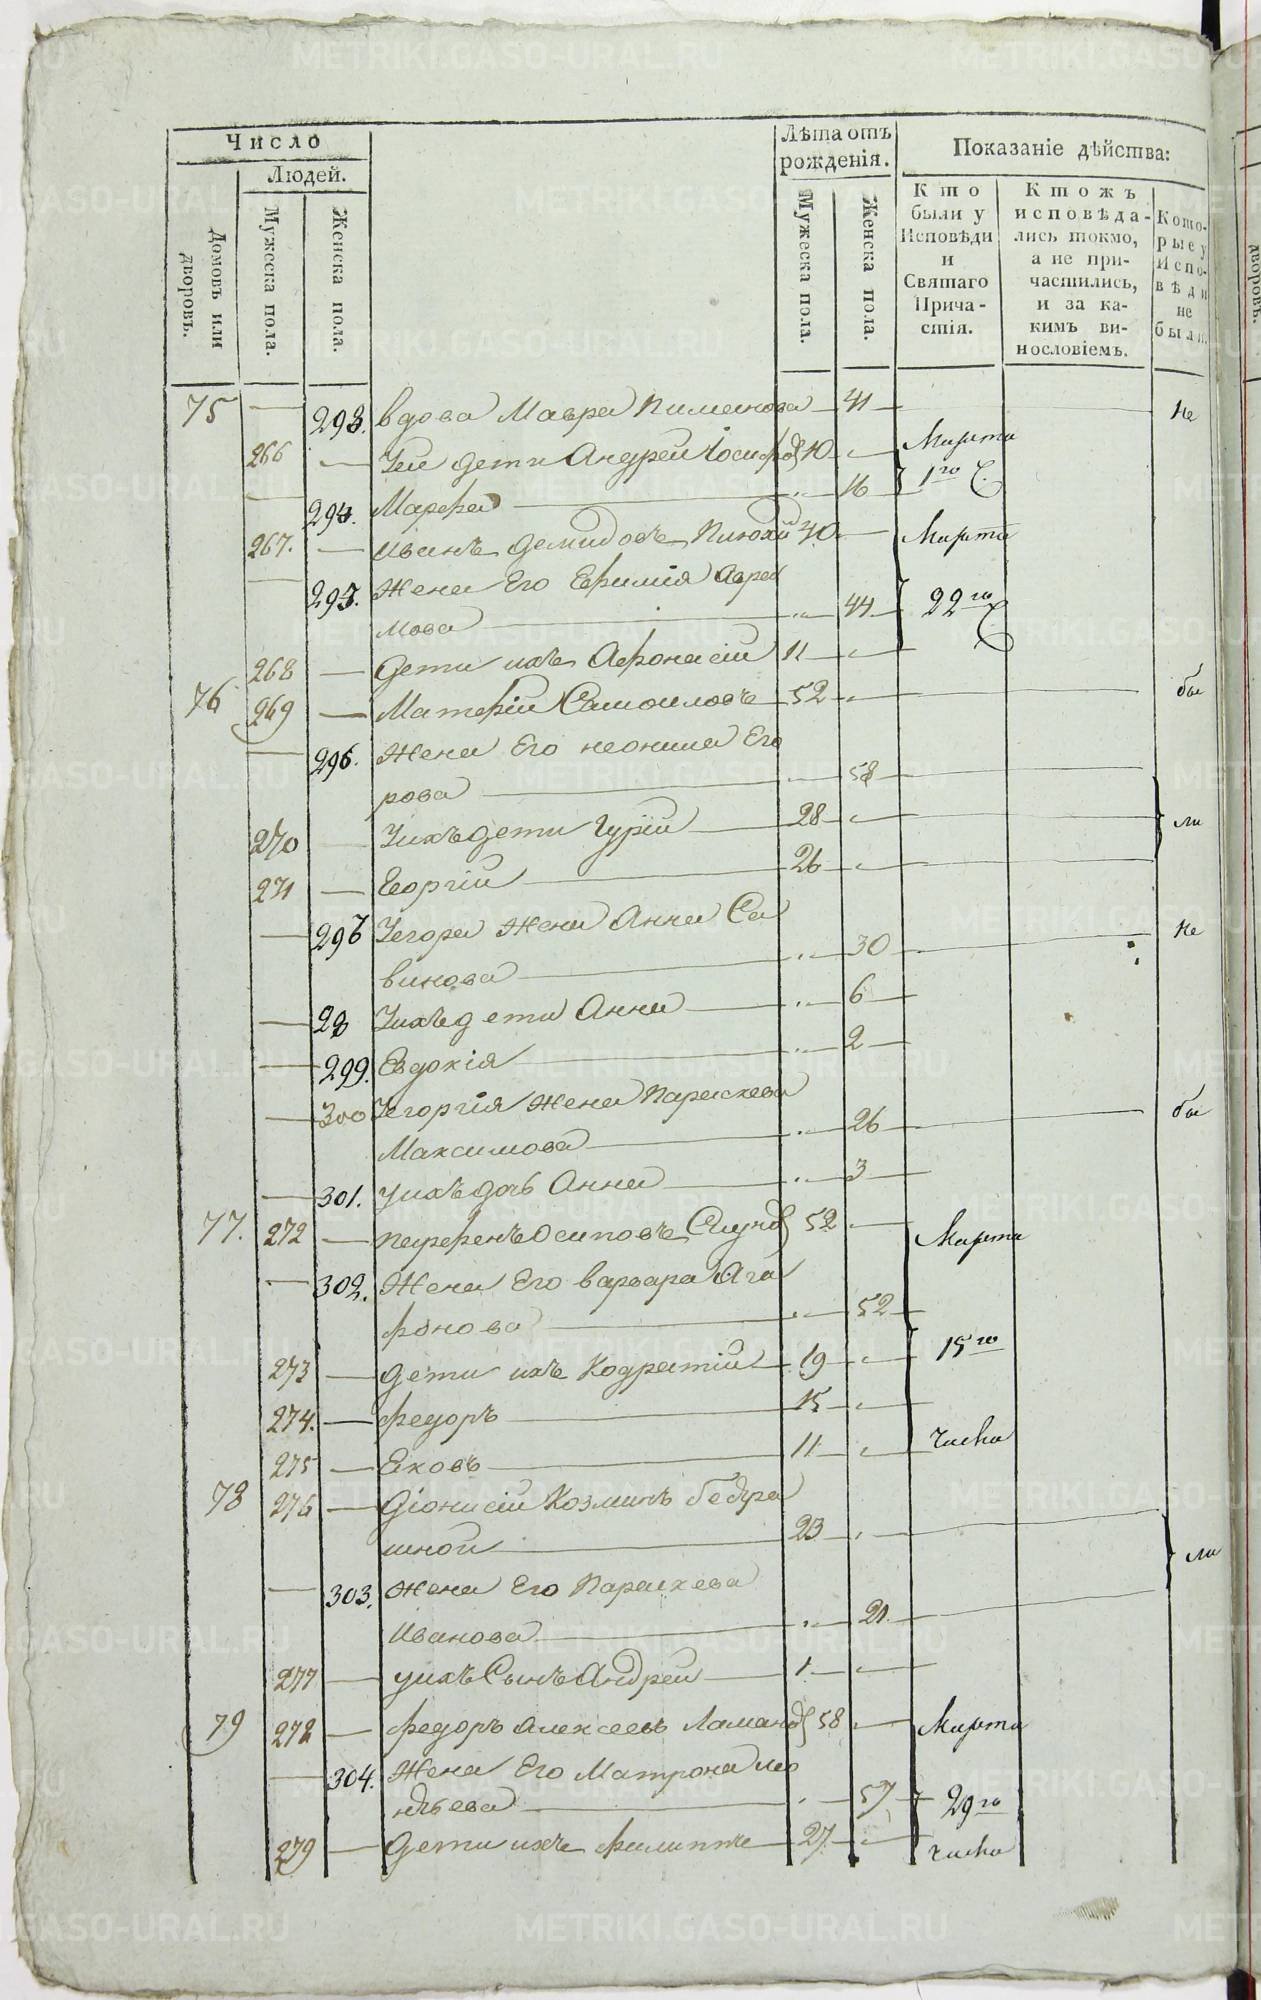 Число
Людей.
Домовъ или дворовъ.
Мужеска пола.
Женска пола.
Лѣта отъ рожденія.
Мужеска пола.
Женска пола.
Показаніе дѣйства:
Кто были у Исповѣди и Святаго Причастія.
Ктожъ исповѣдались токмо, а не причастились, и за какимъ винословіемъ.
Которые у Исповѣди не были.
75 — 293. вдова Мавра Пименова — 41 — Не
266 — Уей дети Андрей 10 — Марта
— 294. Марфа — 16 1го
267. — Иванъ Демидовъ 40 — Марта
— 295. Жена Его Евфимія Авра
мова — 44 — 22го
268 — Дети ихъ Афонасій 11 —
76 269 — Матфій Самоиловъ 52 — бы
— 296. Жена Его неонила Его
рова — 58 —
270 Уихъ дети Гурій — 28 — ли
271 — Георгій — 26 —
— 297 Уегора Жена Анна Са
винова — 30 — Не
— 29 Уихъ дети Анна — 6 —
— 299. Евдокія — 2 —
— 300 Уегоргія Жена Параскева
Максимова — 26 — бы
— 301. уихъ дочь Анна — 3 —
77. 272 — парфенъ Осиповъ 52 — Марта
— 302. Жена Его варвара Ага
фонова — 52 —
273 — дети ихъ Кодратій — 19 — 15го
274. — федоръ — 15 —
275 — Ековъ — 11 — числа
78 276 — Діонисій Козминъ
шной — 23 — ли
— 303. Жена Его Параскева
Иванова — 21 —
277 — уихъ Сынъ Андрей — 1 —
79 278 — федоръ Алексеевъ 58 — Марта
— 304. Жена Его Матрона Лео
нтьева — 57 — 29го
279 — Дети ихъ филиппъ — 27 — числа
METRIKI.GASO-URAL.RU